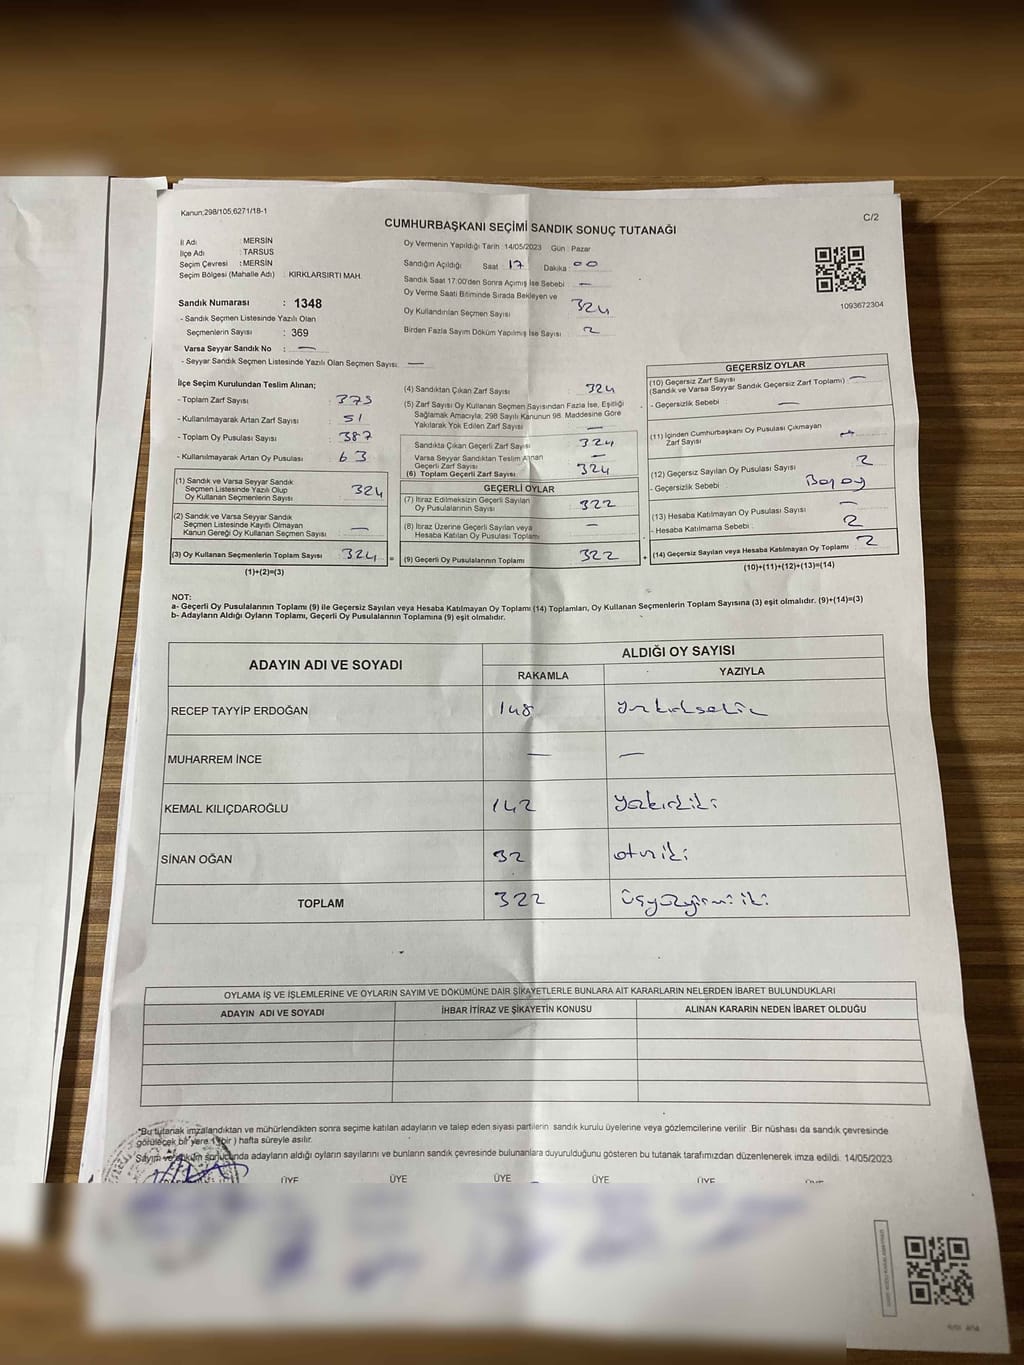 Kanun;298/105,6271/18-1
C/2
CUMHURBAŞKANI SEÇİMİ SANDIK SONUÇ TUTANAĞI
İl Adı : MERSİN
İlçe Adı : TARSUS
Seçim Çevresi : MERSİN
Seçim Bölgesi (Mahalle Adı) : KIRKLARSIRTI MAH.
Sandık Numarası : 1348
- Sandık Seçmen Listesinde Yazılı Olan
Seçmenlerin Sayısı : 369
Varsa Seyyar Sandık No : —
- Seyyar Sandık Seçmen Listesinde Yazılı Olan Seçmen Sayısı: —
Oy Vermenin Yapıldığı Tarih : 14/05/2023 Gün : Pazar
Sandığın Açıldığı Saat : 17 Dakika : 00
Sandık Saat 17:00'den Sonra Açımış İse Sebebi : —
Oy Verme Saati Bitiminde Sırada Bekleyen ve
Oy Kullandırılan Seçmen Sayısı : 324
Birden Fazla Sayım Döküm Yapılmış İse Sayısı : 2
1093672304
İlçe Seçim Kurulundan Teslim Alınan;
- Toplam Zarf Sayısı : 375
- Kullanılmayarak Artan Zarf Sayısı : 51
- Toplam Oy Pusulası Sayısı : 387
- Kullanılmayarak Artan Oy Pusulası : 63
(1) Sandık ve Varsa Seyyar Sandık
Seçmen Listesinde Yazılı Olup
Oy Kullanan Seçmenlerin Sayısı : 324
(2) Sandık ve Varsa Seyyar Sandık
Seçmen Listesinde Kayıtlı Olmayan
Kanun Gereği Oy Kullanan Seçmen Sayısı : —
(3) Oy Kullanan Seçmenlerin Toplam Sayısı : 324 =
(1)+(2)=(3)
(4) Sandıktan Çıkan Zarf Sayısı : 324
(5) Zarf Sayısı Oy Kullanan Seçmen Sayısından Fazla İse, Eşitliği
Sağlamak Amacıyla, 298 Sayılı Kanunun 98. Maddesine Göre
Yakılarak Yok Edilen Zarf Sayısı : —
Sandıkta Çıkan Geçerli Zarf Sayısı : 324
Varsa Seyyar Sandıktan Teslim Alınan
Geçerli Zarf Sayısı : —
(6) Toplam Geçerli Zarf Sayısı : 324
GEÇERLİ OYLAR
(7) İtiraz Edilmeksizin Geçerli Sayılan
Oy Pusulalarının Sayısı : 322
(8) İtiraz Üzerine Geçerli Sayılan veya
Hesaba Katılan Oy Pusulası Toplamı : —
(9) Geçerli Oy Pusulalarının Toplamı : 322 +
GEÇERSİZ OYLAR
(10) Geçersiz Zarf Sayısı : —
(Sandık ve Varsa Seyyar Sandık Geçersiz Zarf Toplamı)
- Geçersizlik Sebebi : —
(11) İçinden Cumhurbaşkanı Oy Pusulası Çıkmayan
Zarf Sayısı : —
(12) Geçersiz Sayılan Oy Pusulası Sayısı : 2
- Geçersizlik Sebebi : Boş oy
(13) Hesaba Katılmayan Oy Pusulası Sayısı : —
- Hesaba Katılmama Sebebi : 2
(14) Geçersiz Sayılan veya Hesaba Katılmayan Oy Toplamı : 2
(10)+(11)+(12)+(13)=(14)
NOT:
a- Geçerli Oy Pusulalarının Toplamı (9) ile Geçersiz Sayılan veya Hesaba Katılmayan Oy Toplamı (14) Toplamları, Oy Kullanan Seçmenlerin Toplam Sayısına (3) eşit olmalıdır. (9)+(14)=(3)
b- Adayların Aldığı Oyların Toplamı, Geçerli Oy Pusulalarının Toplamına (9) eşit olmalıdır.
ADAYIN ADI VE SOYADI
ALDIĞI OY SAYISI
RAKAMLA YAZIYLA
RECEP TAYYIP ERDOĞAN 148 yüzkırksekiz
MUHARREM İNCE — —
KEMAL KILIÇDAROĞLU 142 yüzkırkiki
SİNAN OĞAN 32 otuziki
TOPLAM 322 üçyüzyirmiiki
OYLAMA İŞ VE İŞLEMLERİNE VE OYLARIN SAYIM VE DÖKÜMÜNE DAİR ŞİKAYETLERLE BUNLARA AİT KARARLARIN NELERDEN İBARET BULUNDUKLARI
ADAYIN ADI VE SOYADI İHBAR İTİRAZ VE ŞİKAYETİN KONUSU ALINAN KARARIN NEDEN İBARET OLDUĞU
*Bu tutanak imzalandıktan ve mühürlendikten sonra seçime katılan adayların ve talep eden siyasi partilerin sandık kurulu üyelerine veya gözlemcilerine verilir. Bir nüshası da sandık çevresinde
görülecek bir yere 1 (bir) hafta süreyle asılır.
Sayım ve döküm sonucunda adayların aldığı oyların sayılarını ve bunların sandık çevresinde bulunanlara duyurulduğunu gösteren bu tutanak tarafımızdan düzenlenerek imza edildi. 14/05/2023
ÜYE ÜYE ÜYE ÜYE ÜYE ÜYE